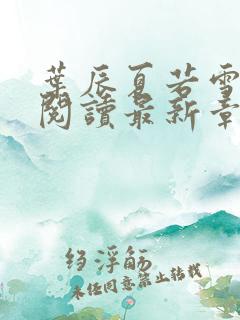 葉辰夏若雪
閱讀最新章
綯浮觞
未经同意禁止转载